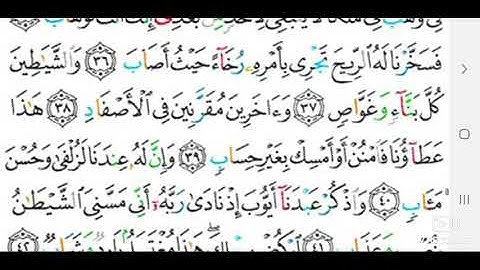 فَسَخَّرْنَا لَهُ ٱلرِّيحَ تَجْرِى بِأَمْرِهِۦ رُخَآءً حَيْثُ أَصَابَ ٣٦ وَٱلشَّيَٰطِينَ
كُلَّ بَنَّآءٍ وَغَوَّاصٍ ٣٧ وَءَاخَرِينَ مُقَرَّنِينَ فِى ٱلْأَصْفَادِ ٣٨ هَٰذَا
عَطَآؤُنَا فَٱمْنُنْ أَوْ أَمْسِكْ بِغَيْرِ حِسَابٍ ٣٩ وَإِنَّ لَهُۥ عِندَنَا لَزُلْفَىٰ وَحُسْنَ
مَـَٔابٍ ٤٠ وَٱذْكُرْ عَبْدَنَآ أَيُّوبَ إِذْ نَادَىٰ رَبَّهُۥٓ أَنِّى مَسَّنِىَ ٱلشَّيْطَٰنُ
وَعَذَابٍ ٤١ ٱرْكُضْ هَٰذَا مُغْتَسَلٌۢ بَارِدٌ وَشَرَابٌ ٤٢